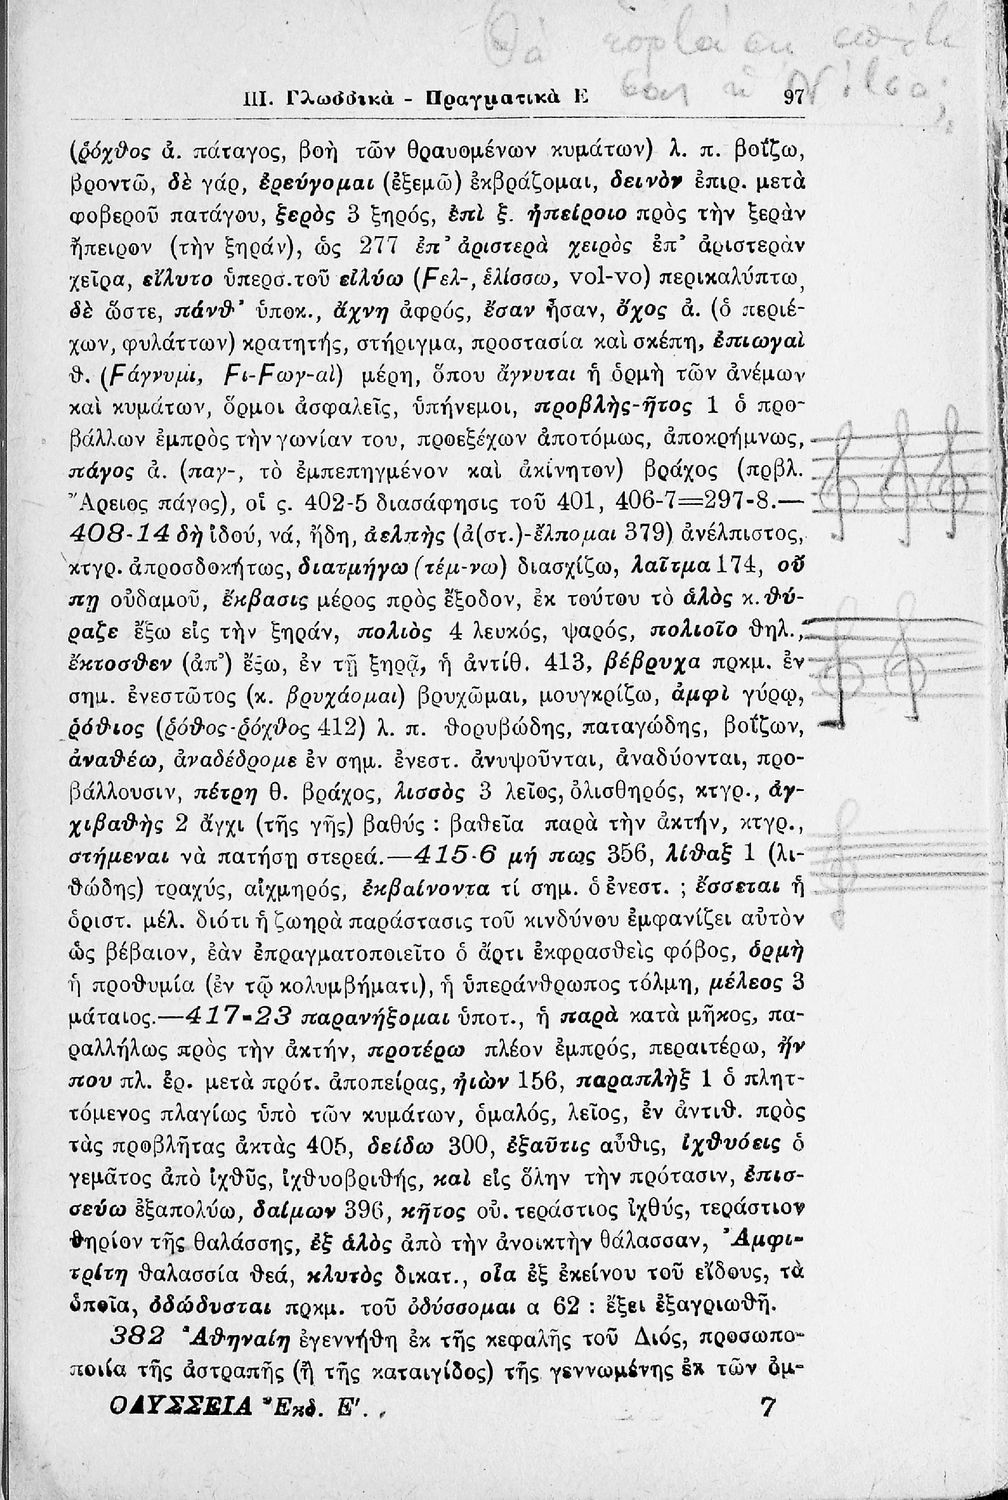 III. Γλωσσικὰ - Πραγματικὰ Ε 97
(ῥόχθος ἀ. πάταγος, βοὴ τῶν θραυομένων κυμάτων) λ. π. βοΐζω,
βροντῶ, δὲ γάρ, ἐρεύγομαι (ἐξεμῶ) ἐκβράζομαι, δεινὸν ἐπιρ. μετὰ
φοβεροῦ πατάγου, ξερὸς 3 ξηρός, ἐπὶ ξ. ἠπείροιο πρὸς τὴν ξερὰν
ἤπειρον (τὴν ξηράν), ὡς 277 ἐπ᾽ ἀριστερὰ χειρὸς ἐπ᾽ ἀριστερὰν
χεῖρα, εἴλυτο ὑπερσ. τοῦ εἰλύω (Ϝελ-, ἑλίσσω, vol-vo) περικαλύπτω,
δὲ ὥστε, πάνθ᾽ ὑποκ., ἄχνη ἀφρός, ἔσαν ἦσαν, ὄχος ἀ. (ὁ περιέ-
χων, φυλάττων) κρατητής, στήριγμα, προστασία καὶ σκέπη, ἐπιωγαὶ
θ. (Ϝάγνυμι, Ϝι-Ϝωγ-αὶ) μέρη, ὅπου ἄγνυται ἡ ὁρμὴ τῶν ἀνέμων
καὶ κυμάτων, ὅρμοι ἀσφαλεῖς, ὑπήνεμοι, προβλὴς-ῆτος 1 ὁ προ-
βάλλων ἐμπρὸς τὴν γωνίαν του, προεξέχων ἀποτόμως, ἀποκρήμνως,
πάγος ἀ. (παγ-, τὸ ἐμπεπηγμένον καὶ ἀκίνητον) βράχος (πρβλ.
Ἄρειος πάγος), οἱ ς. 402-5 διασάφησις τοῦ 401, 406-7=297-8.—
408-14 δὴ ἰδού, νά, ἤδη, ἀελπὴς (ἀ(στ.)-ἔλπομαι 379) ἀνέλπιστος,
κτγρ. ἀπροσδοκήτως, διατμήγω (τέμ-νω) διασχίζω, λαῖτμα 174, οὔ
πῃ οὐδαμοῦ, ἔκβασις μέρος πρὸς ἔξοδον, ἐκ τούτου τὸ ἁλὸς κ. θύ-
ραζε ἔξω εἰς τὴν ξηράν, πολιὸς 4 λευκός, ψαρός, πολιοῖο θηλ.,
ἔκτοσθεν (ἀπ᾽) ἔξω, ἐν τῇ ξηρᾷ, ἡ ἀντίθ. 413, βέβρυχα πρκμ. ἐν
σημ. ἐνεστῶτος (κ. βρυχάομαι) βρυχῶμαι, μουγκρίζω, ἀμφὶ γύρῳ,
ῥόθιος (ῥόθος-ῥόχθος 412) λ. π. θορυβώδης, παταγώδης, βοΐζων,
ἀναθέω, ἀναδέδρομε ἐν σημ. ἐνεστ. ἀνυψοῦνται, ἀναδύονται, προ-
βάλλουσιν, πέτρη θ. βράχος, λισσὸς 3 λεῖος, ὀλισθηρός, κτγρ., ἀγ-
χιβαθὴς 2 ἄγχι (τῆς γῆς) βαθύς : βαθεῖα παρὰ τὴν ἀκτήν, κτγρ.,
στήμεναι νὰ πατήσῃ στερεά.—415-6 μή πως 356, λίθαξ 1 (λι-
θώδης) τραχύς, αἰχμηρός, ἐκβαίνοντα τί σημ. ὁ ἐνεστ. ; ἔσσεται ἡ
ὁριστ. μέλ. διότι ἡ ζωηρὰ παράστασις τοῦ κινδύνου ἐμφανίζει αὐτὸν
ὡς βέβαιον, ἐὰν ἐπραγματοποιεῖτο ὁ ἄρτι ἐκφρασθεὶς φόβος, ὁρμὴ
ἡ προθυμία (ἐν τῷ κολυμβήματι), ἡ ὑπεράνθρωπος τόλμη, μέλεος 3
μάταιος.—417-23 παρανήξομαι ὑποτ., ἡ παρὰ κατὰ μῆκος, πα-
ραλλήλως πρὸς τὴν ἀκτήν, προτέρω πλέον ἐμπρός, περαιτέρω, ἤν
που πλ. ἐρ. μετὰ πρότ. ἀποπείρας, ἠιὼν 156, παραπλὴξ 1 ὁ πλητ-
τόμενος πλαγίως ὑπὸ τῶν κυμάτων, ὁμαλός, λεῖος, ἐν ἀντιθ. πρὸς
τὰς προβλῆτας ἀκτὰς 405, δείδω 300, ἐξαῦτις αὖθις, ἰχθυόεις ὁ
γεμᾶτος ἀπὸ ἰχθῦς, ἰχθυοβριθής, καὶ εἰς ὅλην τὴν πρότασιν, ἐπισ-
σεύω ἐξαπολύω, δαίμων 396, κῆτος οὐ. τεράστιος ἰχθύς, τεράστιον
θηρίον τῆς θαλάσσης, ἐξ ἁλὸς ἀπὸ τὴν ἀνοικτὴν θάλασσαν, Ἀμφι-
τρίτη θαλασσία θεά, κλυτὸς δικατ., οἷα ἐξ ἐκείνου τοῦ εἴδους, τὰ
ὁποῖα, ὀδώδυσται πρκμ. τοῦ ὀδύσσομαι α 62 : ἔξει ἐξαγριωθῆ.
382 Ἀθηναίη ἐγεννήθη ἐκ τῆς κεφαλῆς τοῦ Διός, προσωπο-
ποιία τῆς ἀστραπῆς (ἢ τῆς καταιγίδος) τῆς γεννωμένης ἐκ τῶν ὀμ-
ΟΔΥΣΣΕΙΑ Ἔκδ. Ε΄. 7